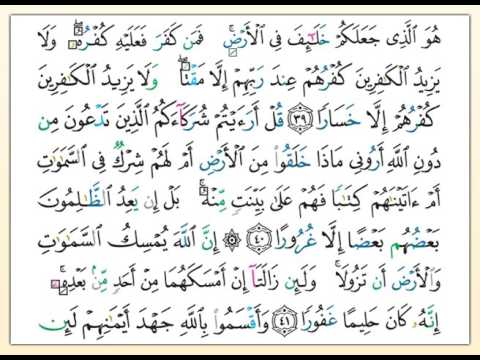 هُوَ ٱلَّذِى جَعَلَكُمْ خَلَـٰٓئِفَ فِى ٱلْأَرْضِ ۚ فَمَن كَفَرَ فَعَلَيْهِ كُفْرُهُۥ ۖ وَلَا
يَزِيدُ ٱلْكَـٰفِرِينَ كُفْرُهُمْ عِندَ رَبِّهِمْ إِلَّا مَقْتًا ۖ وَلَا يَزِيدُ ٱلْكَـٰفِرِينَ
كُفْرُهُمْ إِلَّا خَسَارًا ﴿٣٩﴾ قُلْ أَرَءَيْتُمْ شُرَكَآءَكُمُ ٱلَّذِينَ تَدْعُونَ مِن
دُونِ ٱللَّهِ أَرُونِى مَاذَا خَلَقُوا۟ مِنَ ٱلْأَرْضِ أَمْ لَهُمْ شِرْكٌ فِى ٱلسَّمَـٰوَٰتِ
أَمْ ءَاتَيْنَـٰهُمْ كِتَـٰبًا فَهُمْ عَلَىٰ بَيِّنَتٍ مِّنْهُ ۚ بَلْ إِن يَعِدُ ٱلظَّـٰلِمُونَ
بَعْضُهُم بَعْضًا إِلَّا غُرُورًا ﴿٤٠﴾ ۞ إِنَّ ٱللَّهَ يُمْسِكُ ٱلسَّمَـٰوَٰتِ
وَٱلْأَرْضَ أَن تَزُولَا ۚ وَلَئِن زَالَتَآ إِنْ أَمْسَكَهُمَا مِنْ أَحَدٍ مِّنۢ بَعْدِهِۦٓ ۚ
إِنَّهُۥ كَانَ حَلِيمًا غَفُورًا ﴿٤١﴾ وَأَقْسَمُوا۟ بِٱللَّهِ جَهْدَ أَيْمَـٰنِهِمْ لَئِن